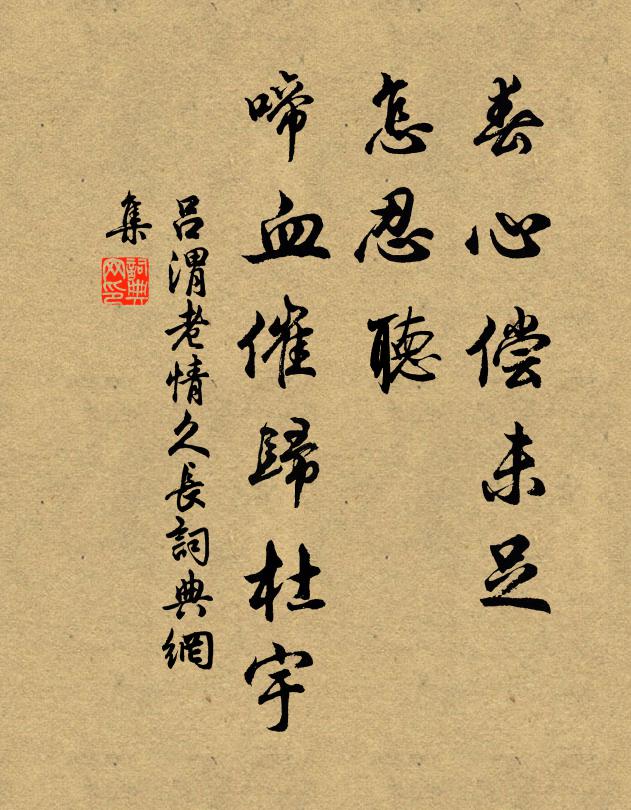 春心偿未足
怎忍聽
啼血催歸杜宇
呂渭老情久長詞典網
集
詞典
网印